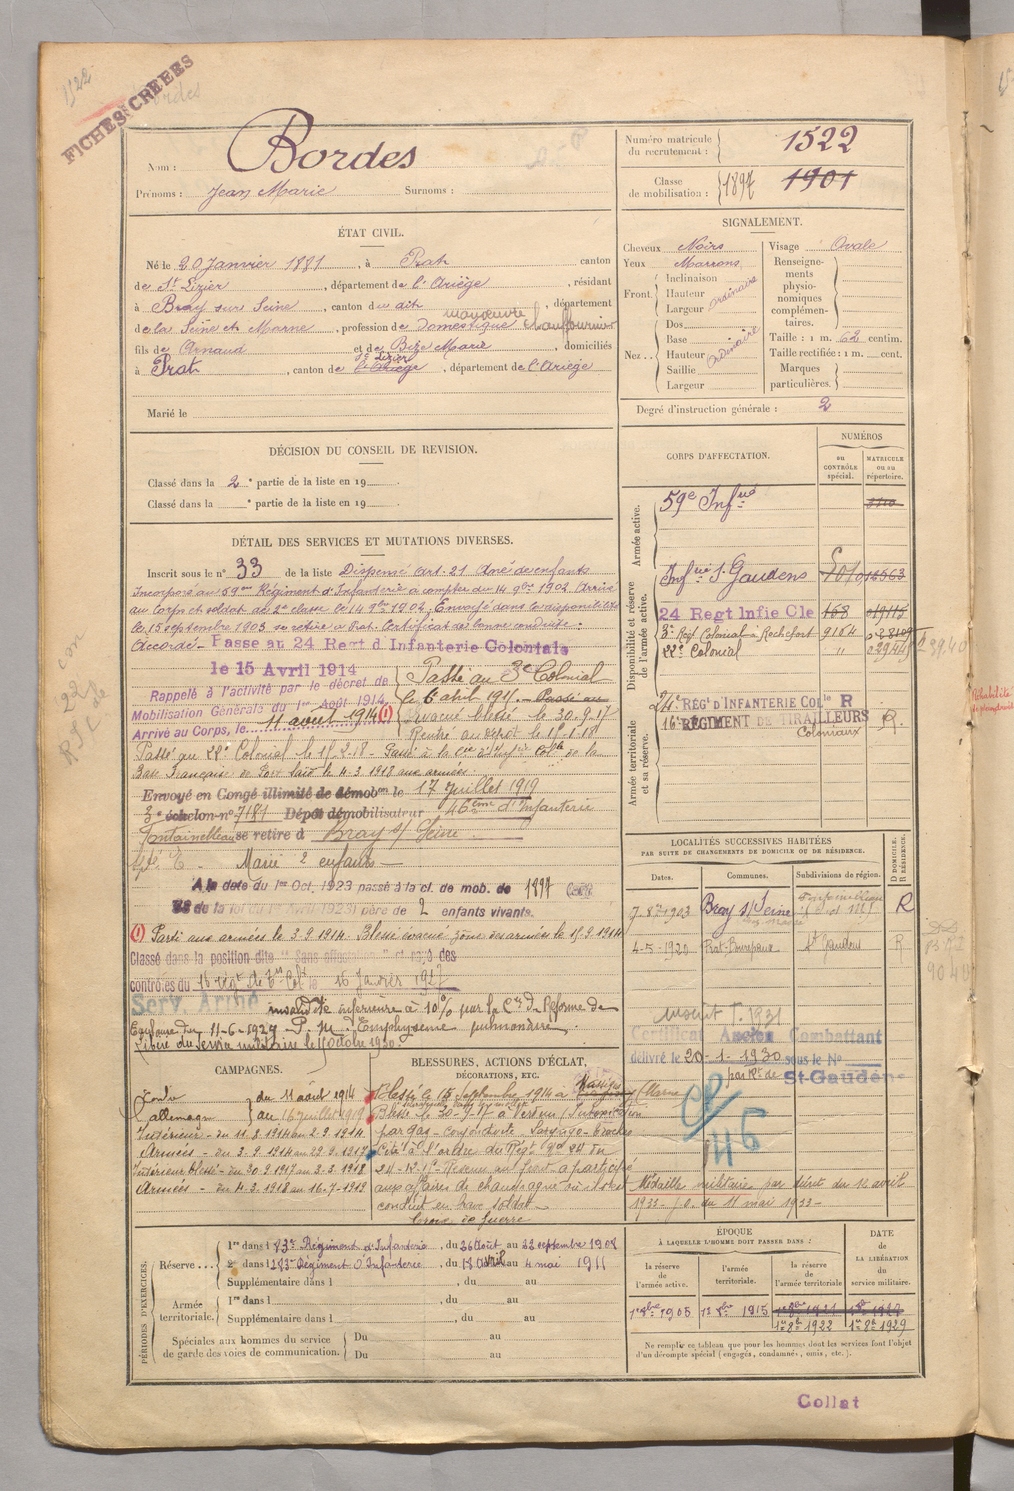 1522
FICHES CRÉÉES
Nom : Bordes
Prénoms : Jean Marie Surnoms :
Numéro matricule du recrutement : 1522
Classe de mobilisation : 1897 1901
ÉTAT CIVIL.
Né le 20 Janvier 1881, à Prat, canton
de St Lizier, département de l'Ariège, résidant
à Bray sur Seine, canton du dit, département
de la Seine et Marne, profession de domestique manœuvre chaufournier
fils de Arnaud et de Bize Marie, domiciliés
à Prat, canton de l'Ariège St Lizier, département de l'Ariège
Marié le
SIGNALEMENT.
Cheveux Noirs
Yeux Marrons
Front. Inclinaison
Hauteur ordinaire
Largeur
Nez. Dos
Base
Hauteur ordinaire
Saillie
Largeur
Visage : Ovale
Renseignements physionomiques complémentaires.
Taille : 1 m. 62 centim.
Taille rectifiée : 1 m. cent.
Marques particulières.
Degré d'instruction générale : 2
DÉCISION DU CONSEIL DE REVISION.
Classé dans la 2e partie de la liste en 19
Classé dans la e partie de la liste en 19
CORPS D'AFFECTATION.
NUMÉROS
au CONTRÔLE spécial.
MATRICULE ou au répertoire.
Armée active.
59e Infrie
Disponibilité et réserve de l'armée active.
Infrie St Gaudens
24 Regt Infie Cle 168
3e Régt Colonial à Rochefort 9164
22e Colonial "
Armée territoriale et sa réserve.
24e RÉGt D'INFANTERIE COLle R
16e RÉGIMENT DE TIRAILLEURS Coloniaux R.
DÉTAIL DES SERVICES ET MUTATIONS DIVERSES.
Inscrit sous le n° 33 de la liste Dispensé Art. 21 Aîné de enfants
Incorporé au 59me Régiment d'Infanterie à compter du 14 9bre 1902 Arrivé
au Corps et soldat de 2e classe le 14 9bre 1902. Envoyé dans la disponibilité
le 15 septembre 1903, se retire à Prat. Certificat de bonne conduite :
Accordé - Passe au 24 Regt d Infanterie Coloniale
le 15 Avril 1914
Rappelé à l'activité par le décret de
Mobilisation Générale du 1er Août 1914
Arrivé au Corps, le 11 août 1914 (1)
Passé au 3e Colonial
Evacué blessé le 30.9.17
Rentré au dépôt le
Passé au 22e Colonial le
Base Française de Port Saïd le 4.3.1918 aux armées
Envoyé en Congé illimité de démobon le 17 Juillet 1919
3e échelon n° 7181 Dépôt démobilisateur 46ème d'Infanterie
Fontainebleau se retire à Bray s/ Seine
Marié 2 enfants
A la date du 1er Oct. 1923 passé à la cl. de mob. de 1897
père de 2 enfants vivants.
(1) Parti aux armées le 3.9.1914. Blessé évacué zone des armées le 15.9.1914
Classé dans la position dite "Sans affectation" et rayé des
contrôles du 16 Régt de Tir Col le 16 Janvier 1927
Serv. Armé invalidité inférieure à 10% par la Con de Réforme de
Toulouse du 11-6-1929 - P. m. Emphysème pulmonaire
Libéré du service militaire le 15 Octobre 1930.
LOCALITÉS SUCCESSIVES HABITÉES
PAR SUITE DE CHANGEMENTS DE DOMICILE OU DE RÉSIDENCE.
Dates. Communes. Subdivisions de région. D DOMICILE. R RÉSIDENCE.
Bray s/ Seine Fontainebleau R
4-5-1920 St Gaudens R
Certificat Ancien Combattant
délivré le 20-1-1930 sous le N°
par Ct de St-Gaudens
CP 46
Médaille militaire par décret du 12 avril
1933 J.O. du 11 mai 1933
CAMPAGNES.
Contre l'allemagne du 11 août 1914 au 16 juillet 1919
Intérieur - du 11.8.1914 au 2.9.1914
Armées - du 3.9.1914 au 29.9.1917
Intérieur blessé - du 30.9.1917 au 3.3.1918
Armées - du 4.3.1918 au 16.7.1919
BLESSURES, ACTIONS D'ÉCLAT,
DÉCORATIONS, ETC.
Blessé le 15 Septembre 1914 à Massiges (Marne)
Blessé le 30-9-17 à Verdun Intoxication
par gaz
Cité à l'ordre du Régt
aux affaires de champagne
conduit en brave soldat
Croix de Guerre
PÉRIODES D'EXERCICES.
Réserve... 1re dans l 83e Régiment d'Infanterie, du 26 Août au 22 septembre 1908
2e dans l 283e Régiment d'Infanterie, du 18 avril au 4 mai 1911
Supplémentaire dans l , du au
Armée territoriale. 1re dans l , du au
Supplémentaire dans l , du au
Spéciales aux hommes du service de garde des voies de communication. Du au
Du au
ÉPOQUE
À LAQUELLE L'HOMME DOIT PASSER DANS :
la réserve de l'armée active. l'armée territoriale. la réserve de l'armée territoriale
DATE de LA LIBÉRATION du service militaire.
1er 9bre 1905 1er 8bre 1915 1er 8bre 1922 1er 8bre 1929
Ne remplir ce tableau que pour les hommes dont les services font l'objet
d'un décompte spécial (engagés, condamnés, omis, etc.).
Collat